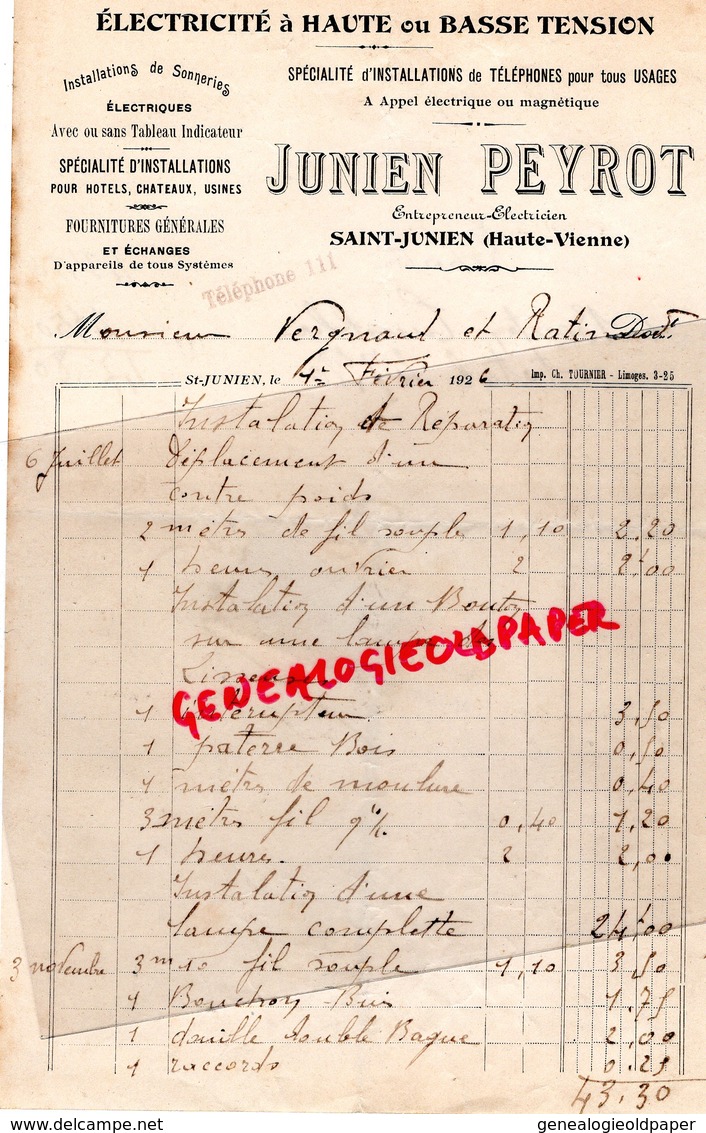 ÉLECTRICITÉ à HAUTE ou BASSE TENSION
Installations de Sonneries
ÉLECTRIQUES
Avec ou sans Tableau Indicateur
SPÉCIALITÉ D'INSTALLATIONS
POUR HOTELS, CHATEAUX, USINES
FOURNITURES GÉNÉRALES
ET ÉCHANGES
D'appareils de tous Systèmes
SPÉCIALITÉ d'INSTALLATIONS de TÉLÉPHONES pour tous USAGES
A Appel électrique ou magnétique
JUNIEN PEYROT
Entrepreneur-Electricien
SAINT-JUNIEN (Haute-Vienne)
Téléphone 111
Monsieur Vergnaud et Ratin
St-JUNIEN, le Février 1926
Imp. Ch. TOURNIER - Limoges. 3-25
Instalation de Reparation
6 Juillet Déplacement d'un
contre poids
2 mètres de fil souple 1,10 2.20
1 heures ouvrier 2 2f00
Instalation d'un Bouton
sur une lampe de
Liseuse
1 interupteur 3,50
1 paterre Bois 0,50
1 mètres de moulure 0,40
3 mètres fil 9/. 0,40 1,20
1 heures. 2 2,00
Instalation d'une
lampe complette 24f00
3 novembre 3m10 fil souple 1,10 3,50
1 Bouchon Buis 1.75
1 douille double Bague 2,00
1 raccords 0.25
43.30
GENEALOGIEOLDPAPER
genealogieoldpaper
genealogieoldpaper